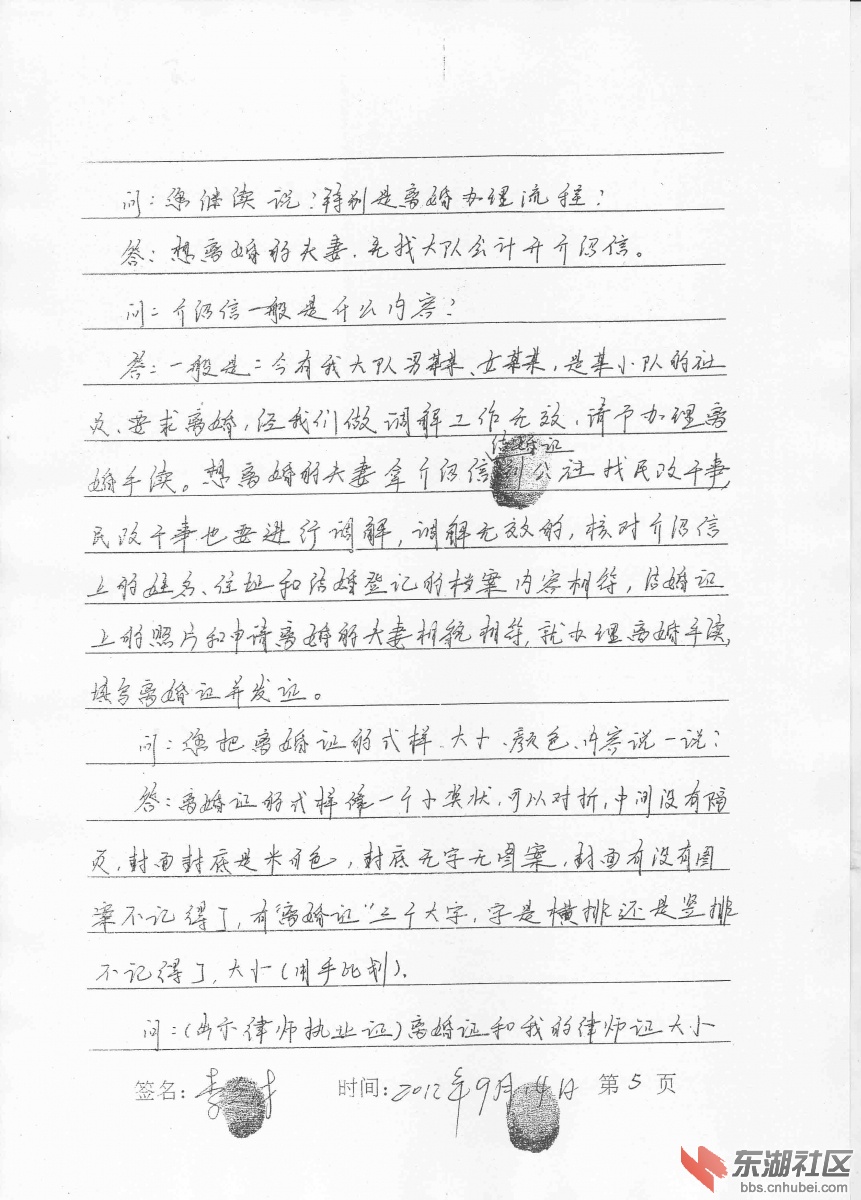 问:您继续说?特别是离婚办理流程?
答:想离婚的夫妻,先找大队会计开介绍信。
问:介绍信一般是什么内容?
答:一般是:今有我大队男某某、女某某,是某小队的社
员、要求离婚,经我们做调解工作无效,请予办理离
结婚证
婚手续。想离婚的夫妻拿介绍信到公社找民政干事,
民政干事也要进行调解,调解无效的,核对介绍信
上的姓名、住址和结婚登记的档案内容相符,结婚证
上的照片和申请离婚的夫妻相貌相符,就办理离婚手续,
填写离婚证并发证。
问:您把离婚证的式样、大小、颜色、内容说一说?
答:离婚证的式样像一个小奖状,可以对折,中间没有隔
页,封面封底是米色,封底无字无图案,封面有没有图
案不记得了,有“离婚证”三个大字,字是横排还是竖排
不记得了,大小(用手比划)。
问:(出示律师执业证)离婚证和我的律师证大小
签名:李 时间:2012年9月14日 第5页
东湖社区
bbs.cnhubei.com